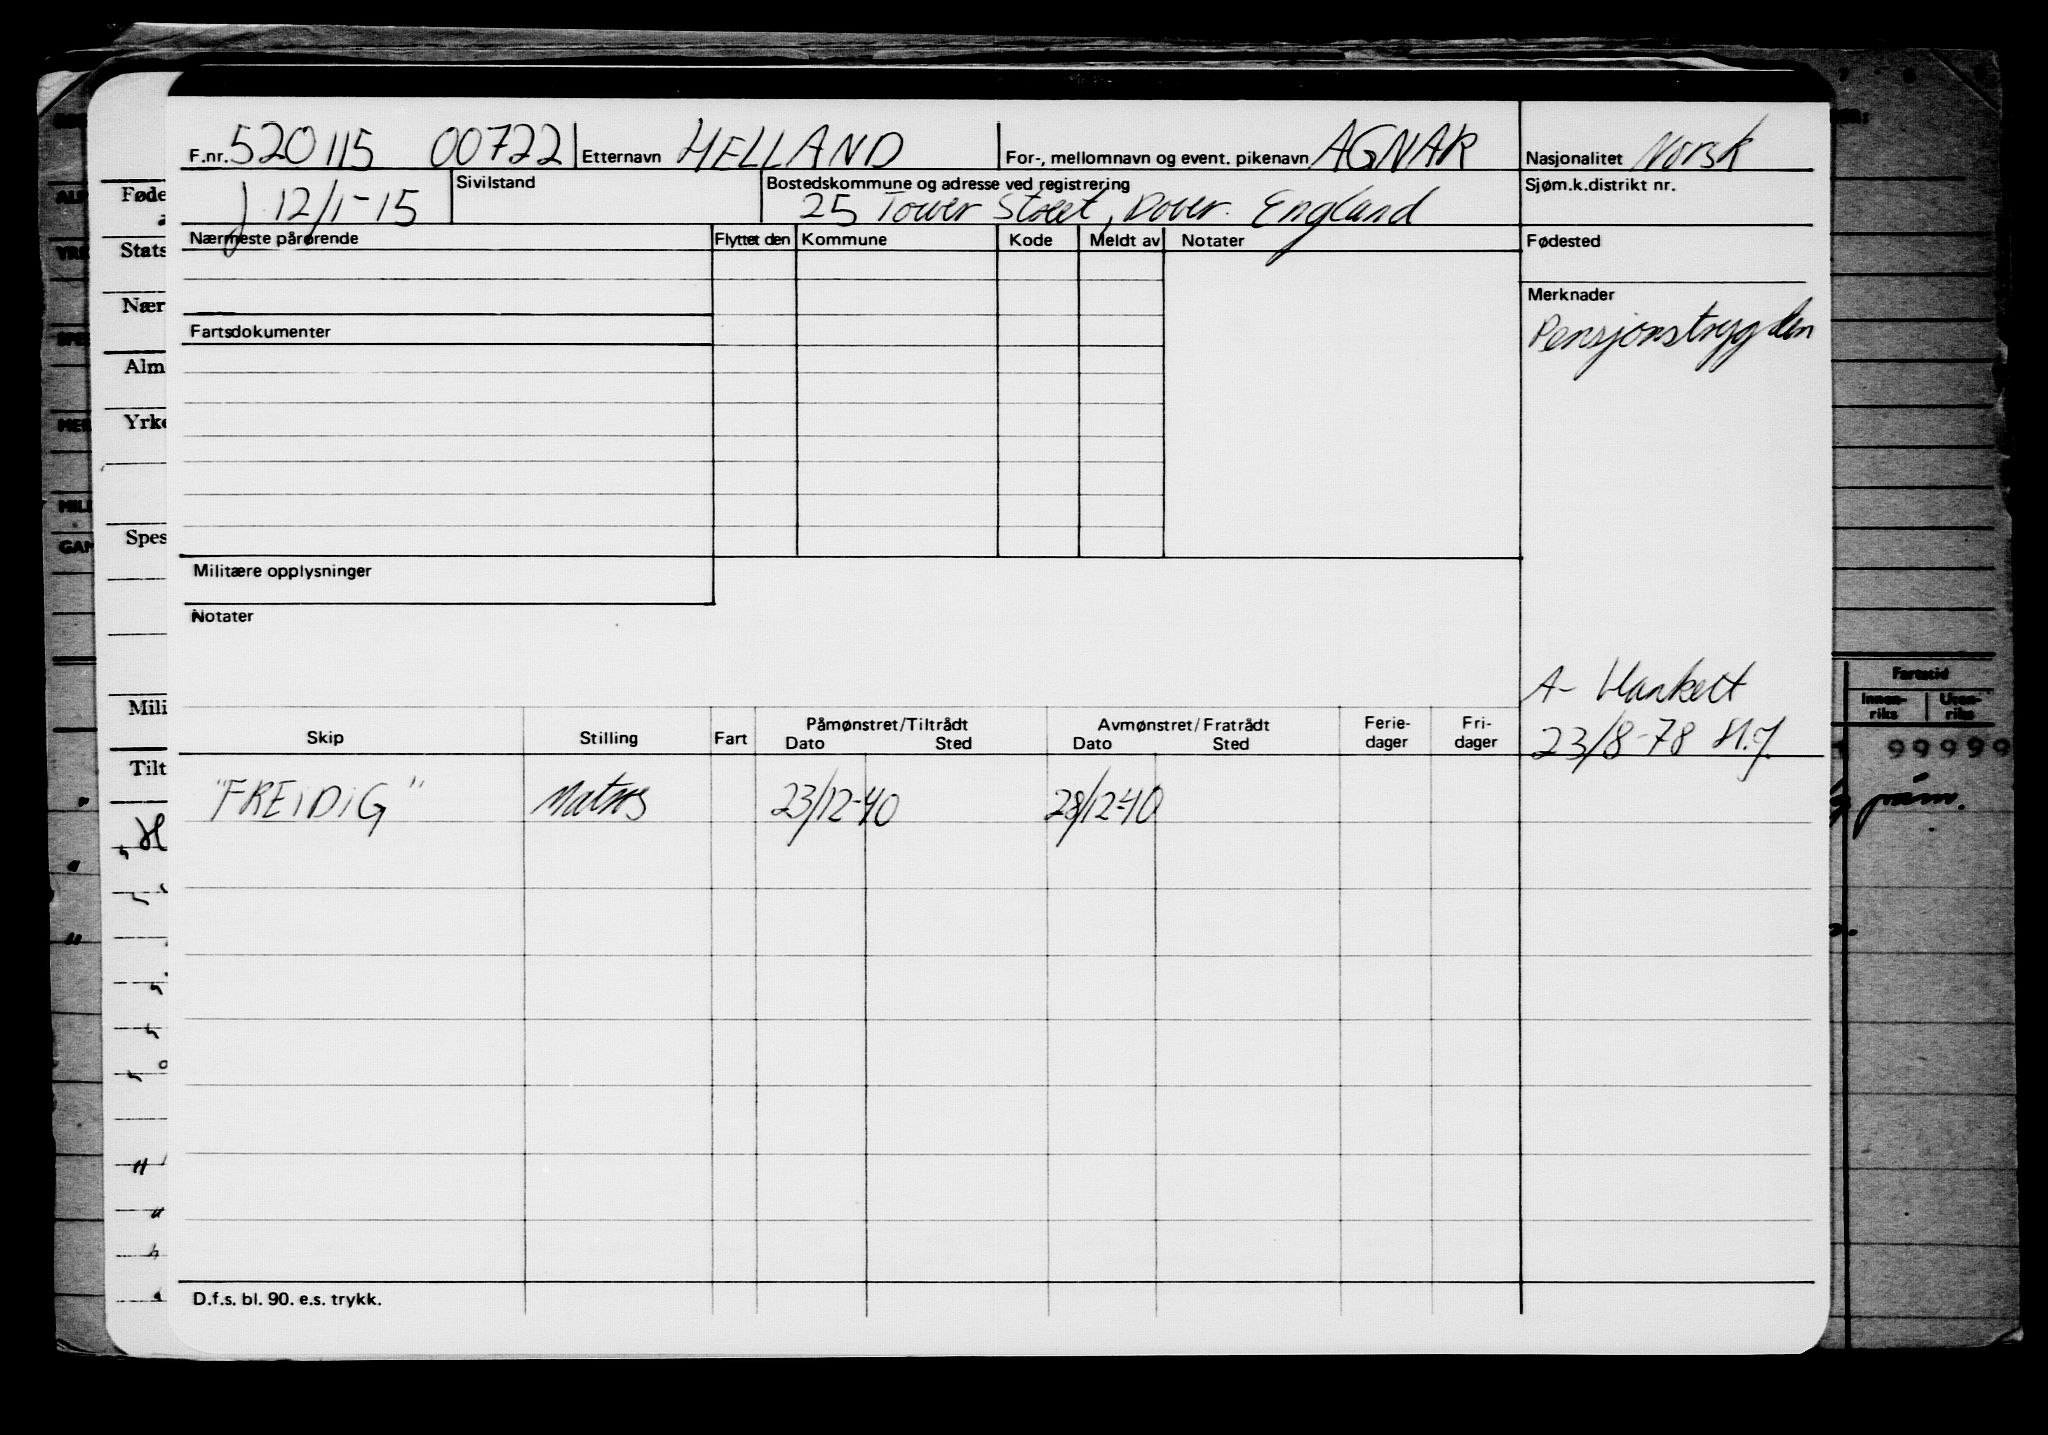 F.nr. 520115 00722 Etternavn HELLAND For-, mellomnavn og event. pikenavn AGNAR Nasjonalitet Norsk
12/1-15 Sivilstand Bostedskommune og adresse ved registrering 25 Tower Street, Dover. England Sjøm.k.distrikt nr.
Nærmeste pårørende Flyttet den Kommune Kode Meldt av Notater Fødested
Merknader
Pensjonstrygden
Fartsdokumenter
Militære opplysninger
Notater
A- blankett
23/8-78
Påmønstret/Tiltrådt Avmønstret/Fratrådt Ferie- Fri-
Skip Stilling Fart Dato Sted Dato Sted dager dager
"FREIDIG" Matros 23/12-40 28/12-40
D.f.s. bl. 90. e.s. trykk.
Føde
Stats
Nær
Alm
Yrke
Spes
Mili
Tilt
Fartstid
Innen-riks Uten-riks
99999